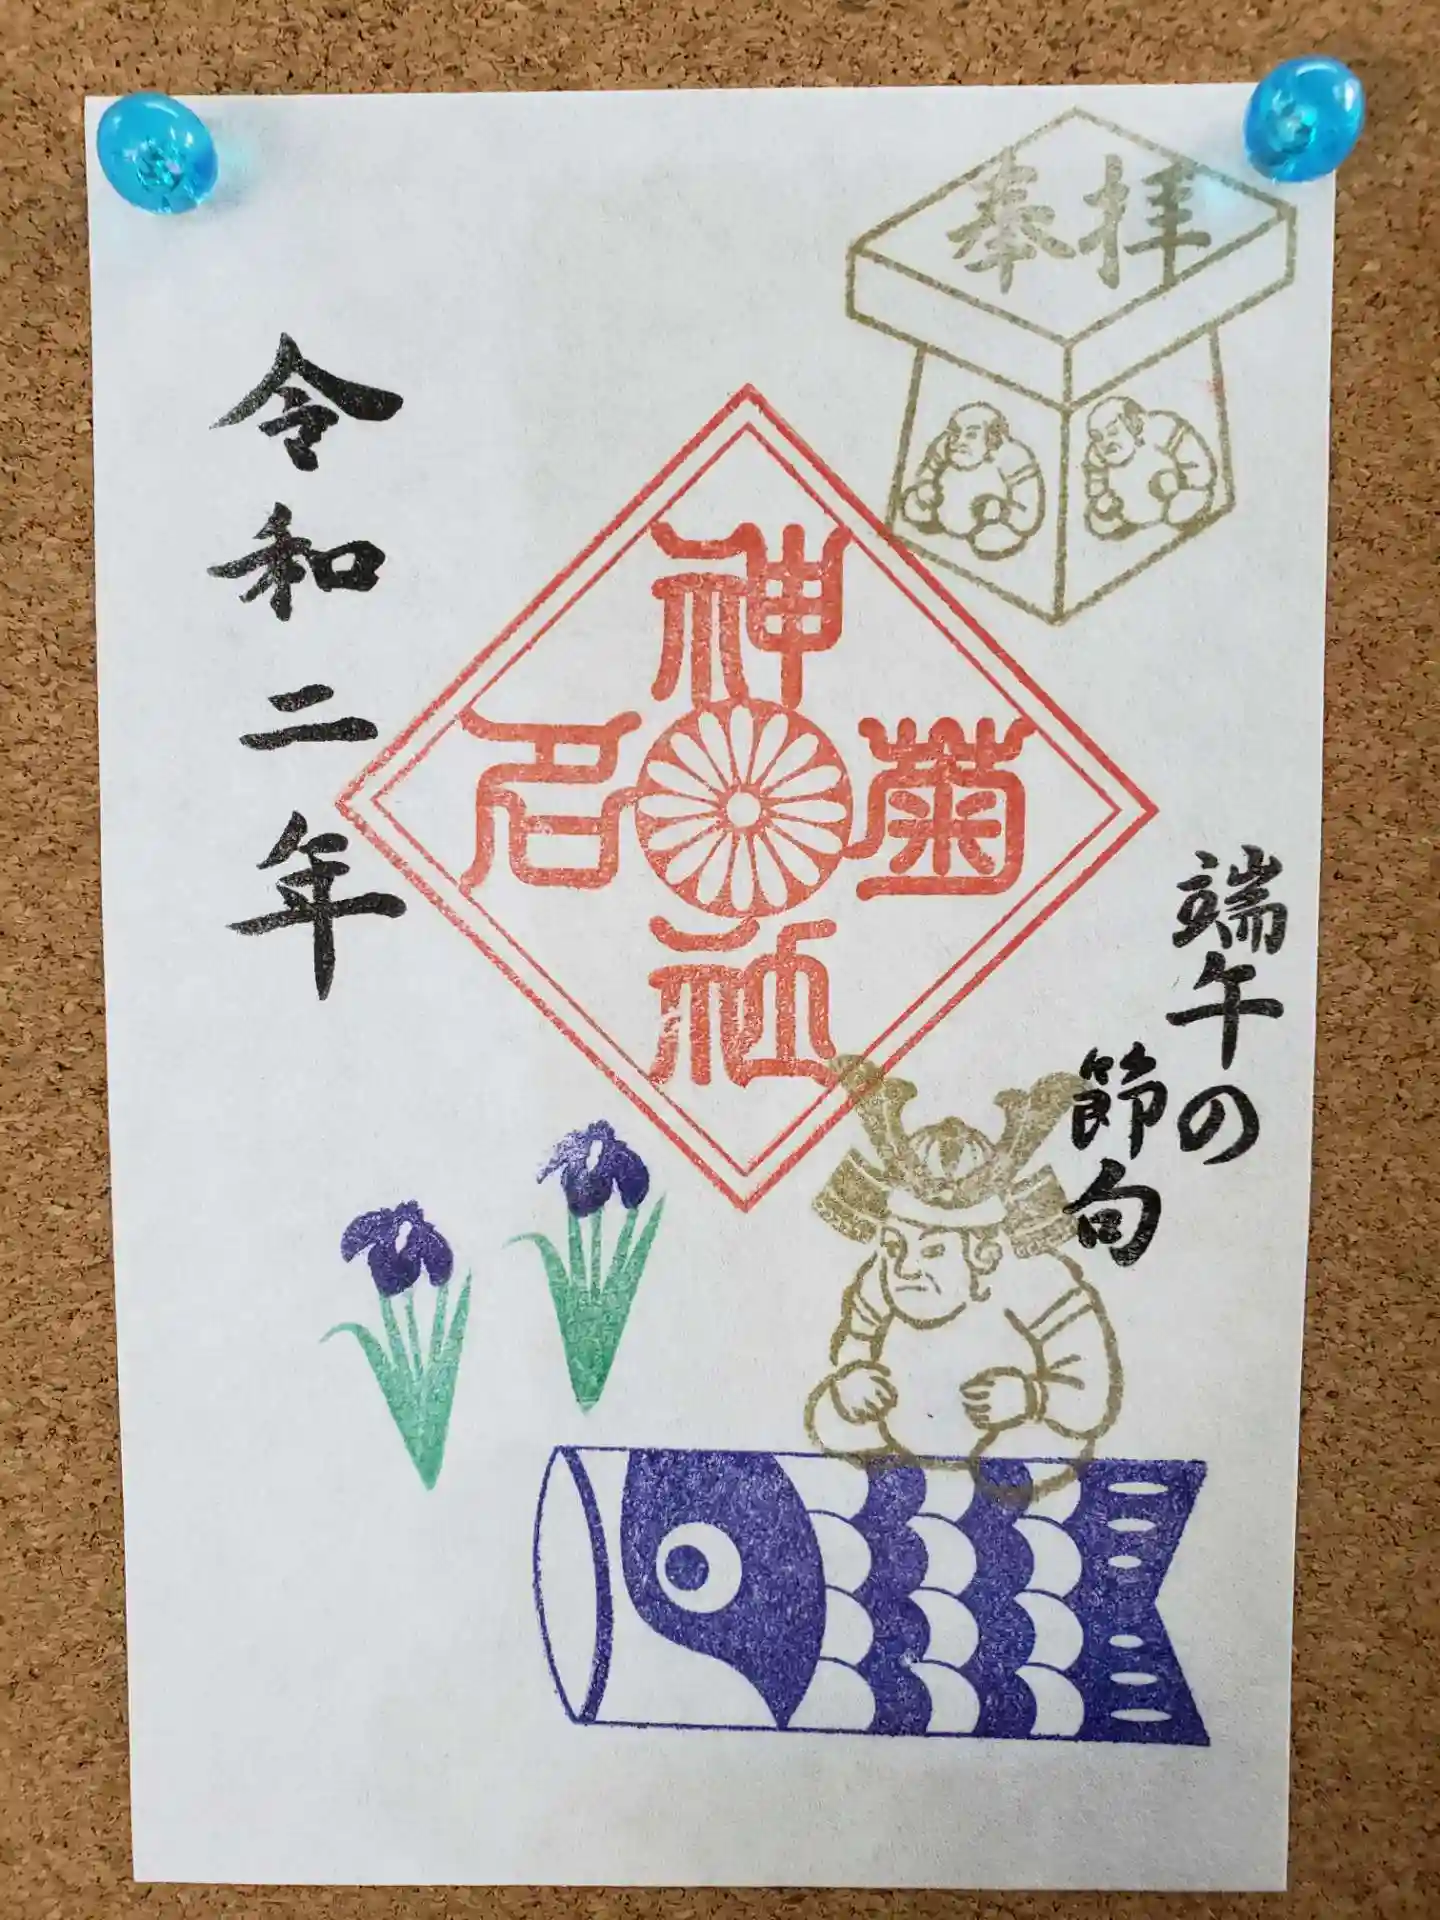 奉拝
菊名神社
端午の
節句
令和二年